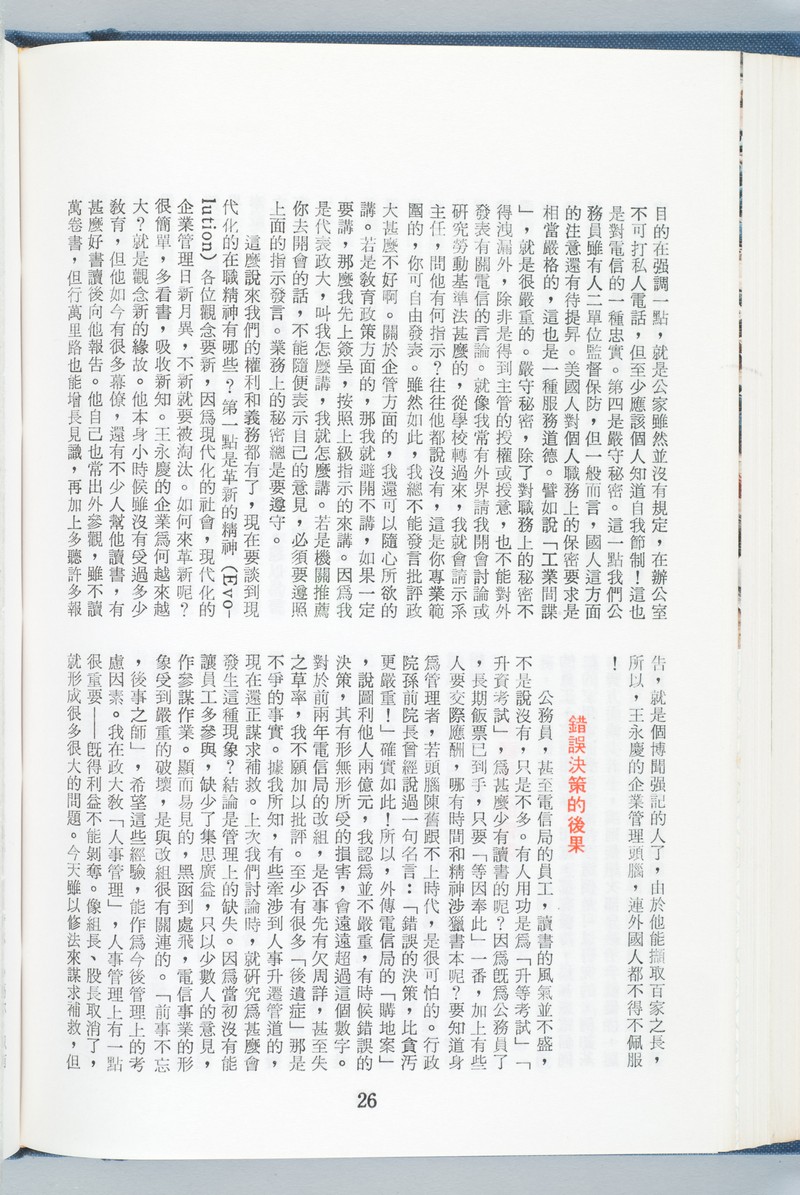 目的在强調一點，就是公家雖然並沒有規定，在辦公室
不可打私人電話，但至少應該個人知道自我節制！這也
是對電信的一種忠實。第四是嚴守秘密。這一點我們公
務員雖有人二單位監督保防，但一般而言，國人這方面
的注意還有待提昇。美國人對個人職務上的保密要求是
相當嚴格的，這也是一種服務道德。譬如說「工業間諜
」，就是很嚴重的。嚴守秘密，除了對職務上的秘密不
得洩漏外，除非是得到主管的授權或授意，也不能對外
發表有關電信的言論。就像我常有外界請我開會討論或
研究勞動基準法甚麼的，從學校轉過來，我就會請示系
主任，問他有何指示？往往他都說沒有，這是你專業範
圍的，你可自由發表。雖然如此，我總不能發言批評政
大甚麼不好啊。關於企管方面的，我還可以隨心所欲的
講。若是教育政策方面的，那我就避開不講，如果一定
要講，那麼我先上簽呈，按照上級指示的來講。因爲我
是代表政大，叫我怎麼講，我就怎麼講。若是機關推薦
你去開會的話，不能隨便表示自己的意見，必須要遵照
上面的指示發言。業務上的秘密總是要遵守。
這麼說來我們的權利和義務都有了，現在要談到現
代化的在職精神有哪些？第一點是革新的精神（Evo-
lution）各位觀念要新，因爲現代化的社會，現代化的
企業管理日新月異，不新就要被淘汰。如何來革新呢？
很簡單，多看書，吸收新知。王永慶的企業爲何越來越
大？就是觀念新的緣故。他本身小時候雖沒有受過多少
敎育，但他如今有很多幕僚，還有不少人幫他讀書，有
甚麼好書讀後向他報告。他自己也常出外參觀，雖不讀
萬卷書，但行萬里路也能增長見識，再加上多聽許多報
告，就是個博聞强記的人了，由於他能擷取百家之長，
所以，王永慶的企業管理頭腦，連外國人都不得不佩服
！
錯誤決策的後果
公務員，甚至電信局的員工，讀書的風氣並不盛，
不是說沒有，只是不多。有人用功是爲「升等考試」「
升資考試」，爲甚麼少有讀書的呢？因爲旣爲公務員了
，長期飯票已到手，只要「等因奉此」一番，加上有些
人要交際應酬，哪有時間和精神涉獵書本呢？要知道身
爲管理者，若頭腦陳舊跟不上時代，是很可怕的。行政
院孫前院長曾經說過一句名言：「錯誤的決策，比貪汚
更嚴重！」確實如此！所以，外傳電信局的「購地案」
，說圖利他人兩億元，我認爲並不嚴重，有時候錯誤的
決策，其有形無形所受的損害，會遠遠超過這個數字。
對於前兩年電信局的改組，是否事先有欠周詳，甚至失
之草率，我不願加以批評。至少有很多「後遺症」那是
不爭的事實。據我所知，有些牽涉到人事升遷管道的，
現在還正謀求補救。上次我們討論時，就研究爲甚麼會
發生這種現象？結論是管理上的缺失。因爲當初沒有能
讓員工多參與，缺少了集思廣益，只以少數人的意見，
作參謀作業。顯而易見的，黑函到處飛，電信事業的形
象受到嚴重的破壞，是與改組很有關連的。「前事不忘
，後事之師」，希望這些經驗，能作爲今後管理上的考
慮因素。我在政大敎「人事管理」，人事管理上有一點
很重要——旣得利益不能剝奪。像組長、股長取消了，
就形成很多很大的問題。今天雖以修法來謀求補救，但
26